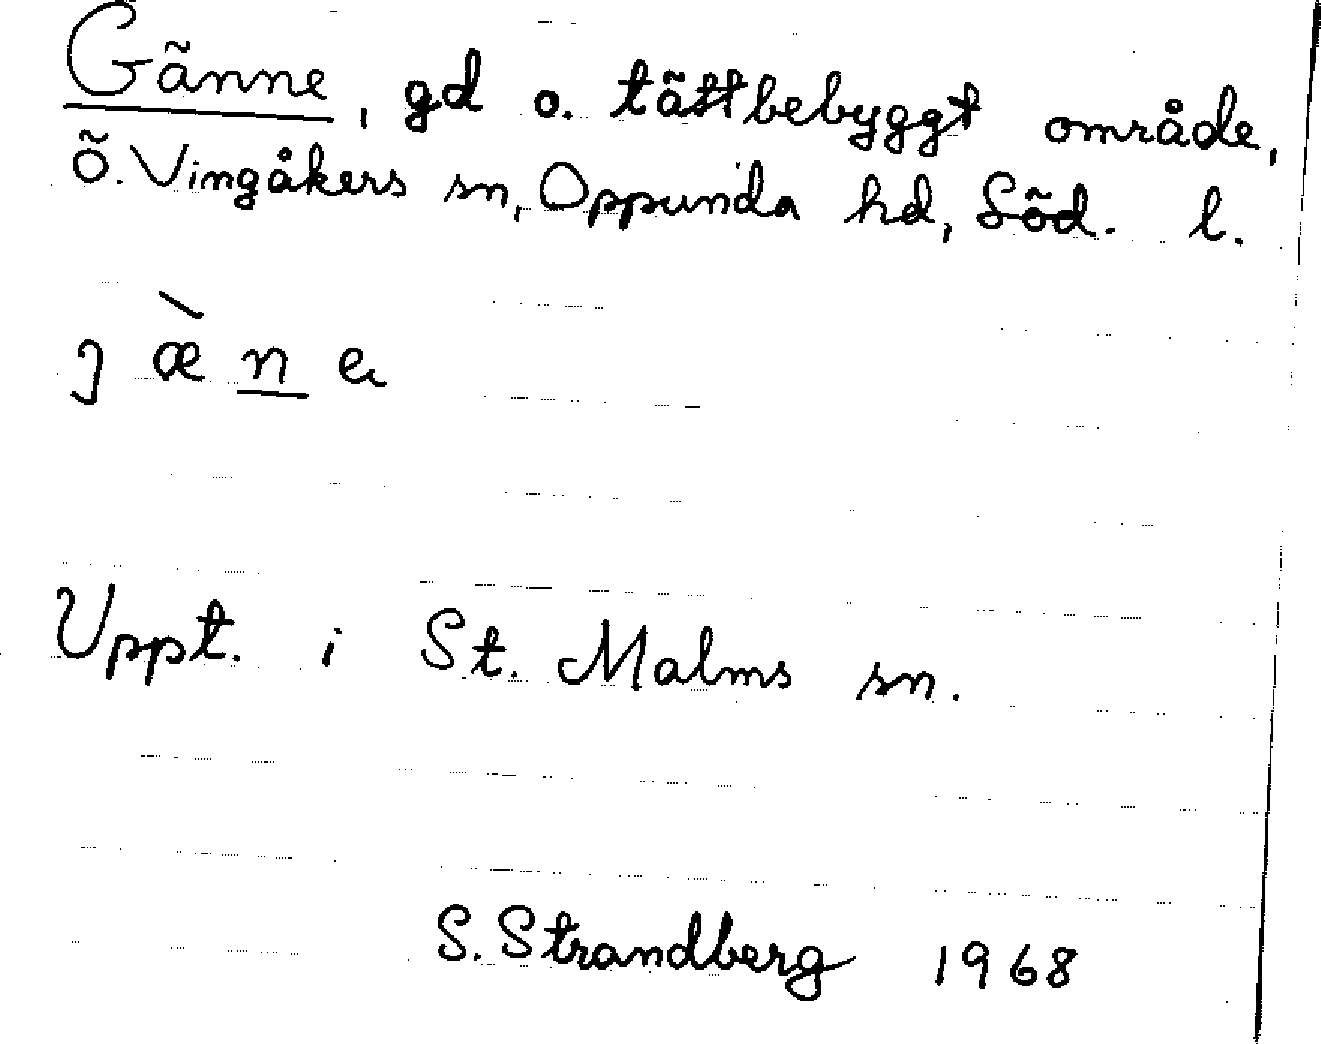 Gänne, gd o. tättbebyggt område,
Ö. Vingåkers sn, Oppunda hd, Söd. l.
j æ̀ n e
Uppt. i St. Malms sn.
S. Strandberg 1968